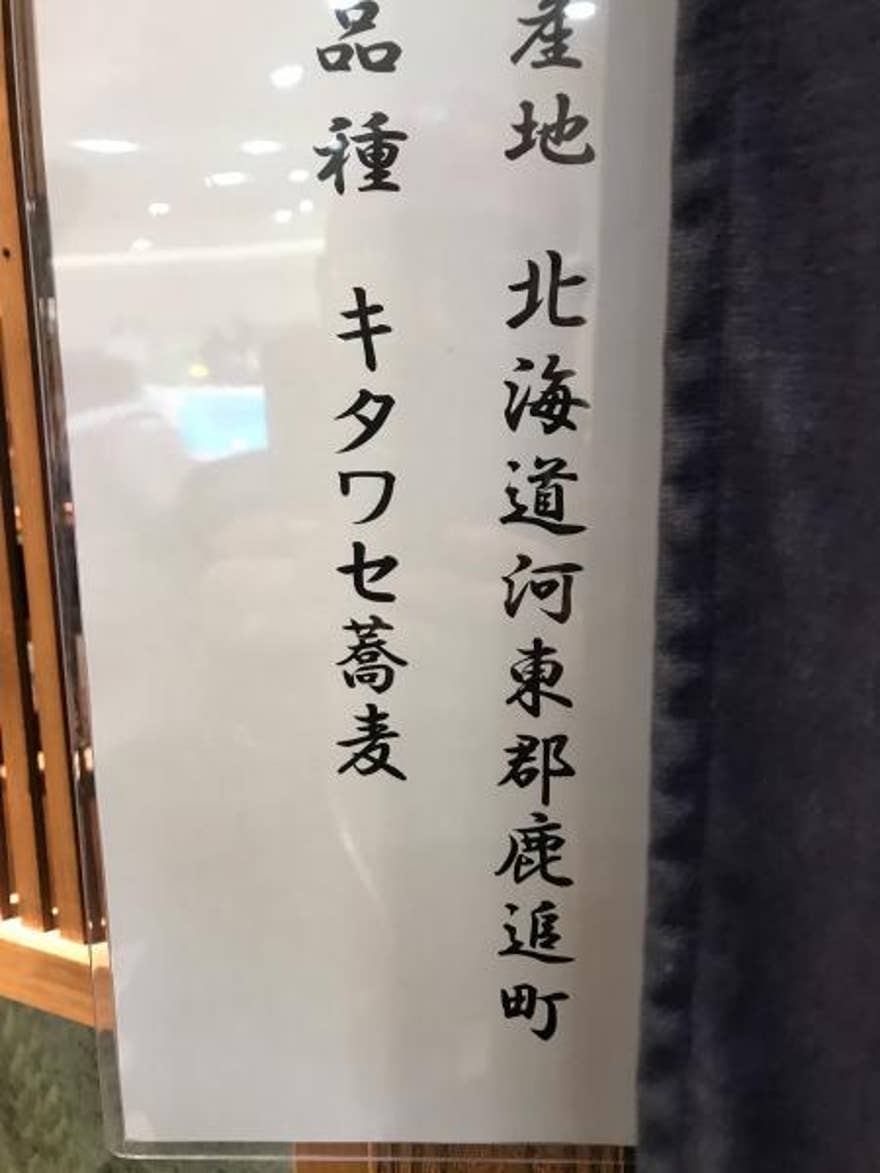 産地 北海道河東郡鹿追町
品種 キタワセ蕎麦